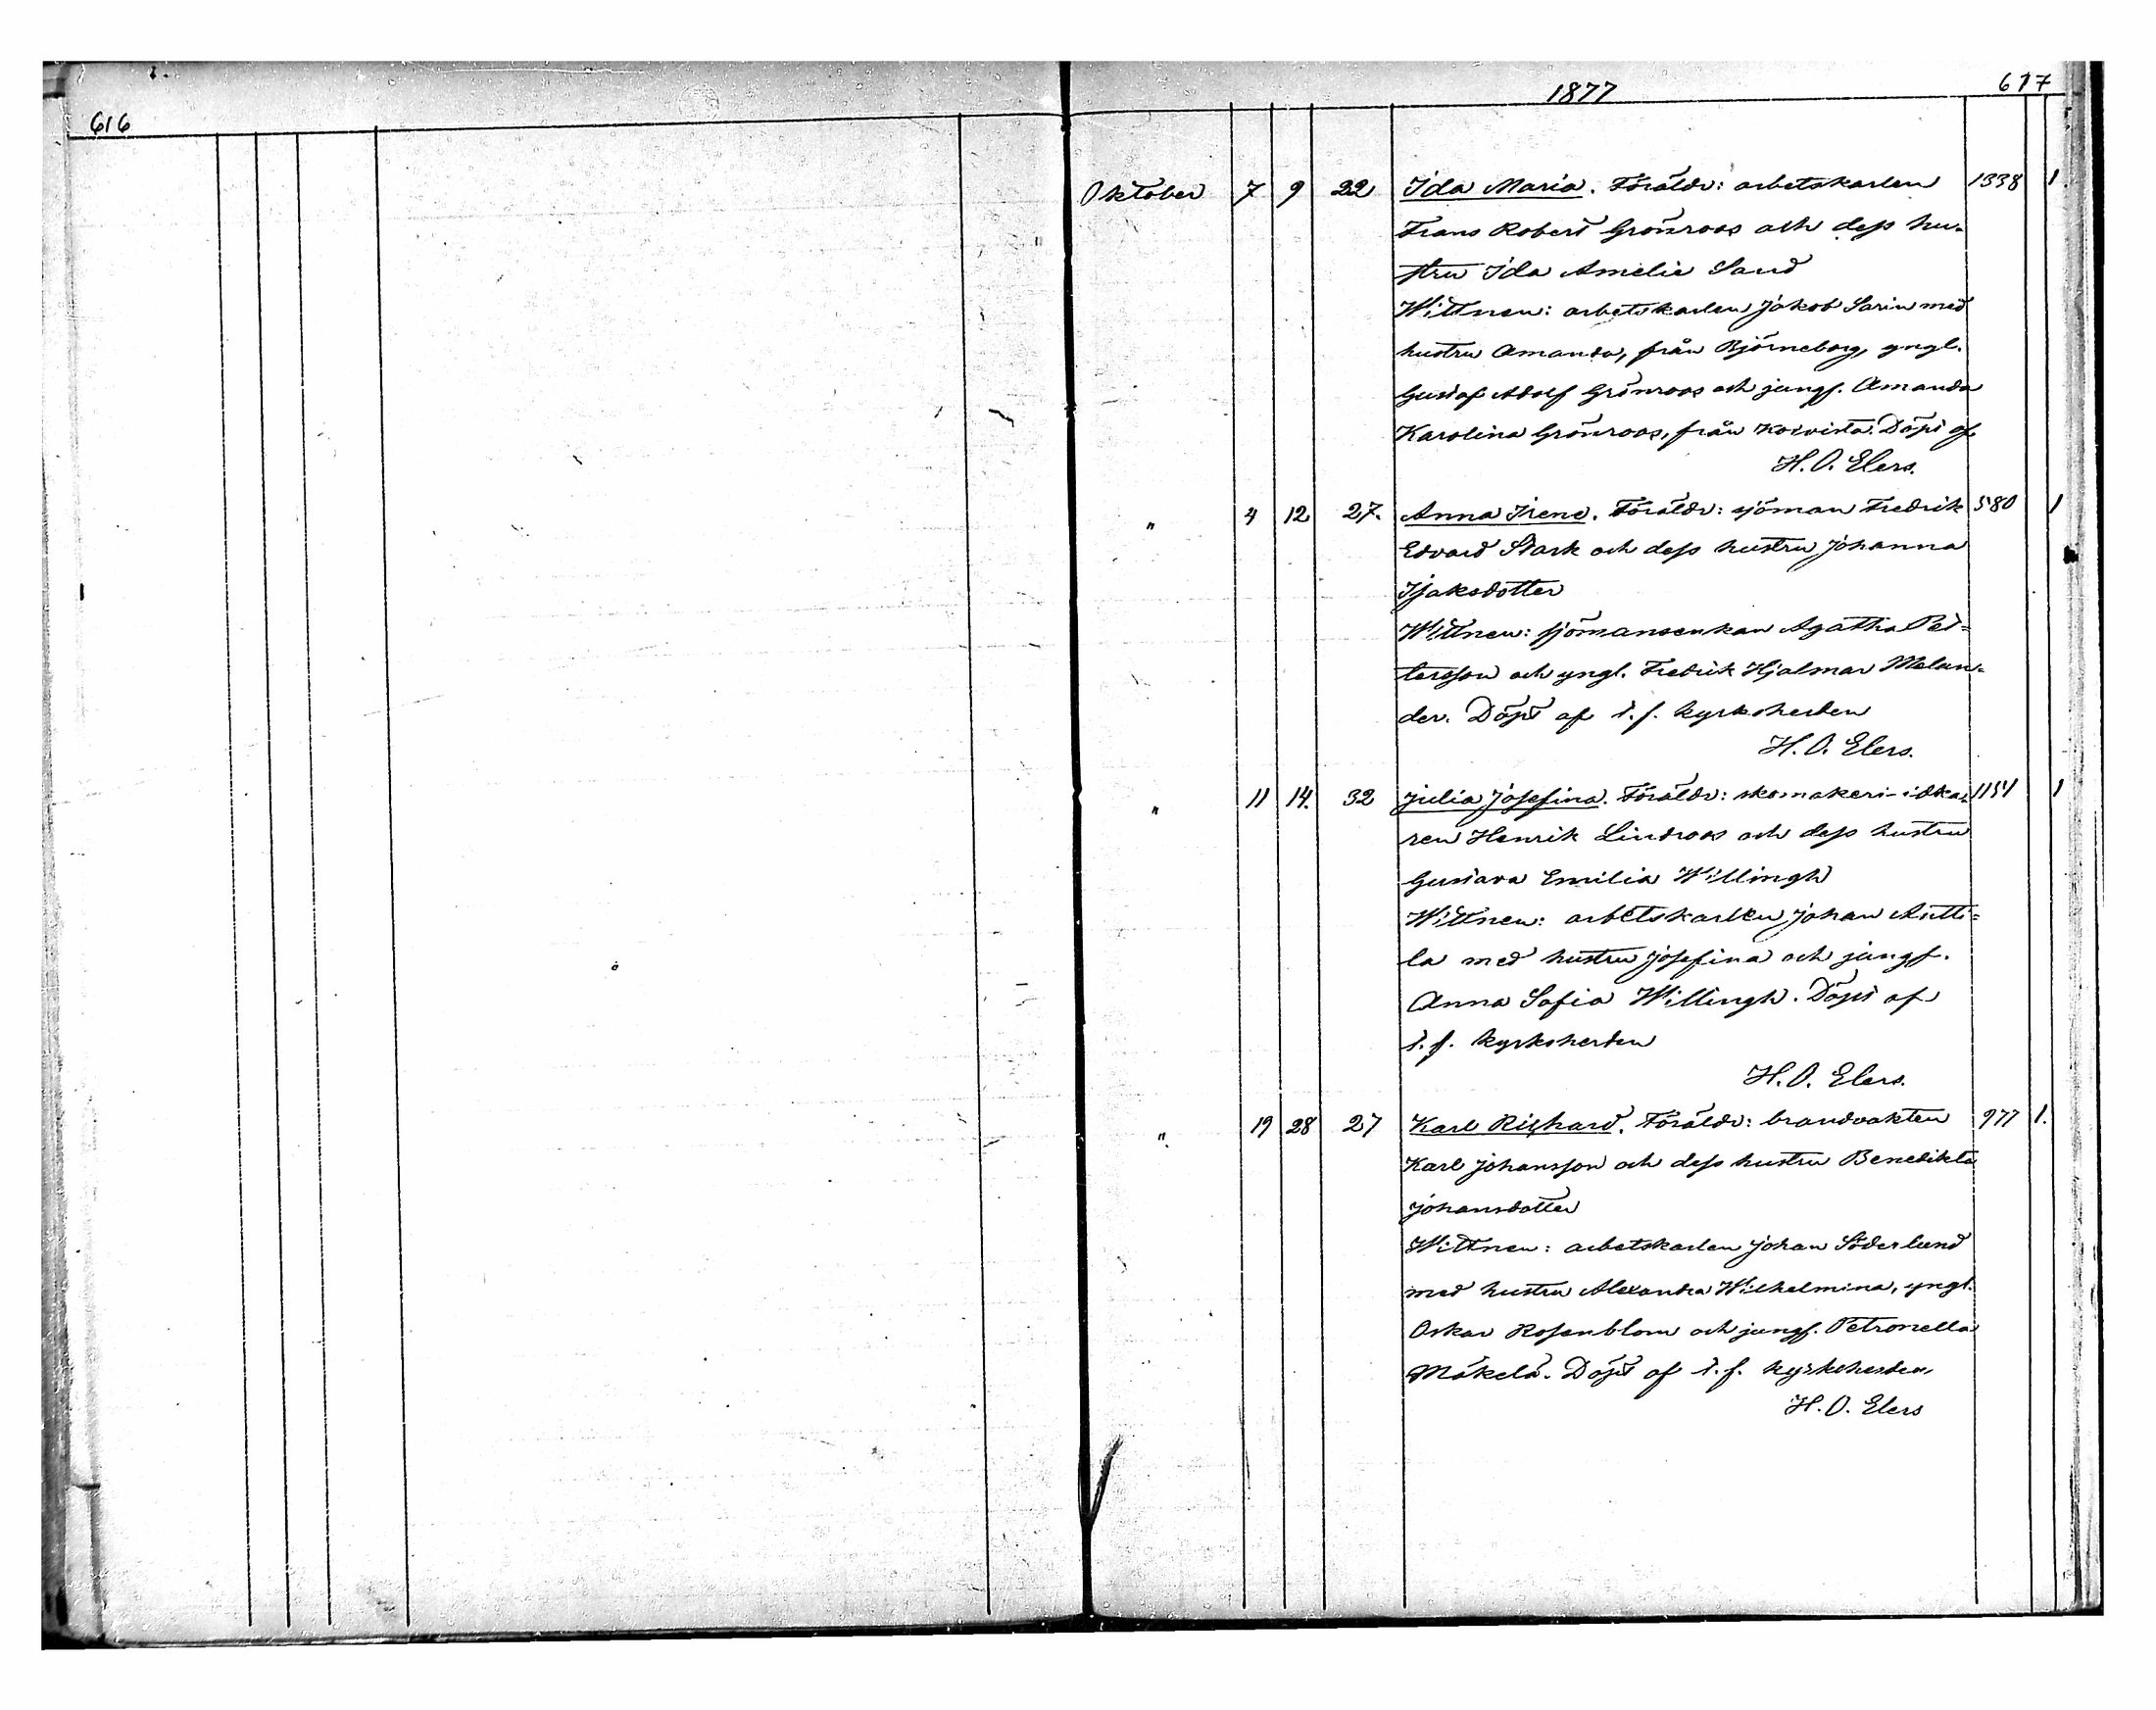 616
1877 617
Oktober 7 9 22 Ida Maria. Föräldr: arbetskarlen 1338 1.
Frans Robert Grönroos och dess hu-
stru Ida Amelie Sand
Wittnen: arbetskarlen Jakob Sarin med
hustru Amanda, från Björneborg, yngl.
Gustaf Adolf Grönroos och jungf. Amanda
Karolina Grönroos, från Koivisto. Döpt af
H. O. Elers.
" 4 12 27. Anna Irene. Föräldr: sjöman Fredrik 580 1
Edvard Stark och dess hustru Johanna
Isaksdotter
Wittnen: sjömansenkan Agatha Pet=
tersson och yngl. Fredrik Hjalmar Melan-
der. Döpt af t. f. kyrkoherden
H. O. Elers.
" 11 14. 32 Julia Josefina. Föräldr: skomakeri-idka- 1151 1
ren Henrik Lindroos och dess hustru
Gustava Emilia Willingh
Wittnen: arbetskarlen Johan Antti=
la med hustru Josefina och jungf.
Anna Sofia Willingh. Döpt af
t. f. kyrkoherden
H. O. Elers.
" 19 28 27 Karl Richard. Föräldr: brandvakten 977 1.
Karl Johansson och dess hustru Benedikta
Johansdotter
Wittnen: arbetskarlen Johan Söderlund
med hustru Alexandra Wilhelmina, yngl.
Oskar Rosenblom och jungf. Petronella
Mäkelä. Döpt af t. f. kyrkoherden,
H. O. Elers